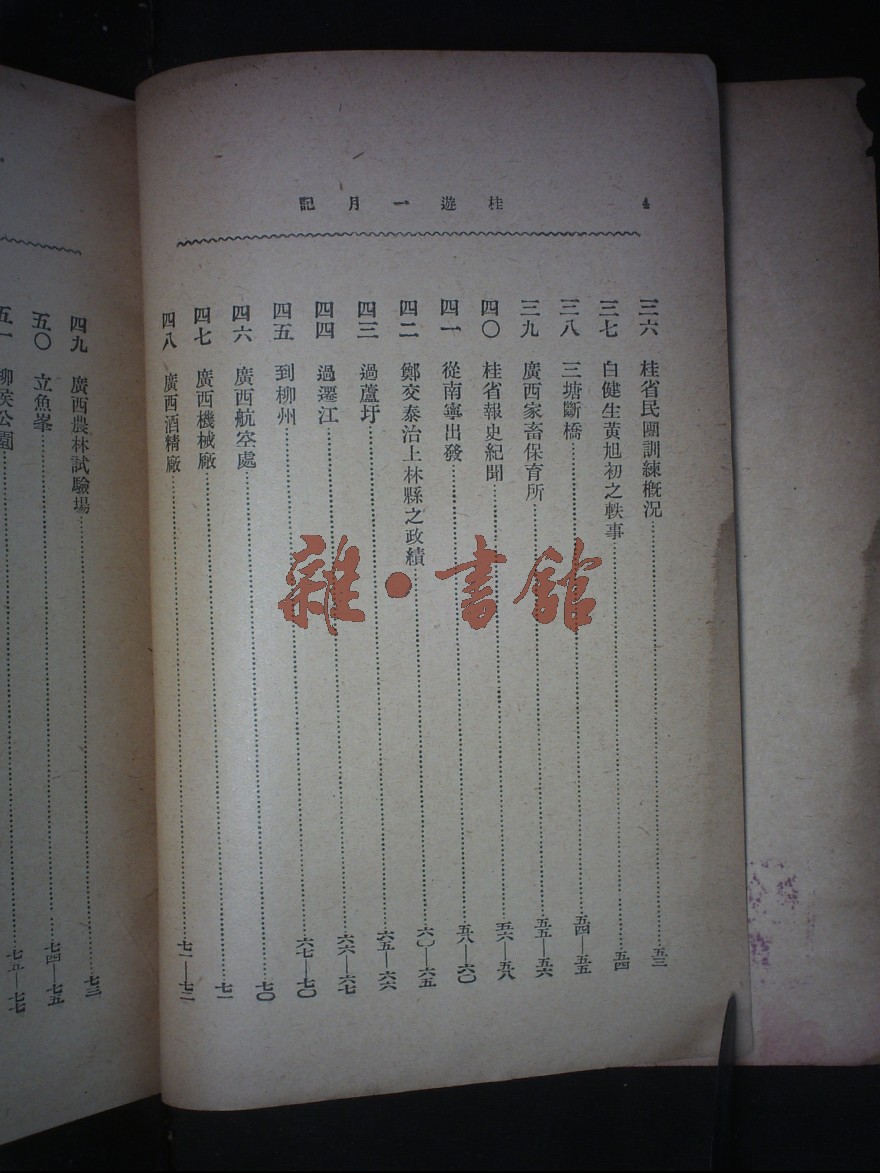 桂遊一月記
4
三六 桂省民團訓練概況 五三
三七 白健生黃旭初之軼事 五四
三八 三塘斷橋 五四—五五
三九 廣西家畜保育所 五五—五六
四〇 桂省報史紀聞 五六—五八
四一 從南寧出發 五八—六〇
四二 鄭交泰治上林縣之政績 六〇—六五
四三 過蘆圩 六五—六六
四四 過遷江 六六—六七
四五 到柳州 六七—七〇
四六 廣西航空處 七〇
四七 廣西機械廠 七一
四八 廣西酒精廠 七一—七二
四九 廣西農林試驗場 七三
五〇 立魚峯 七四—七五
五一 柳侯公園 七五—七七
雜·書館